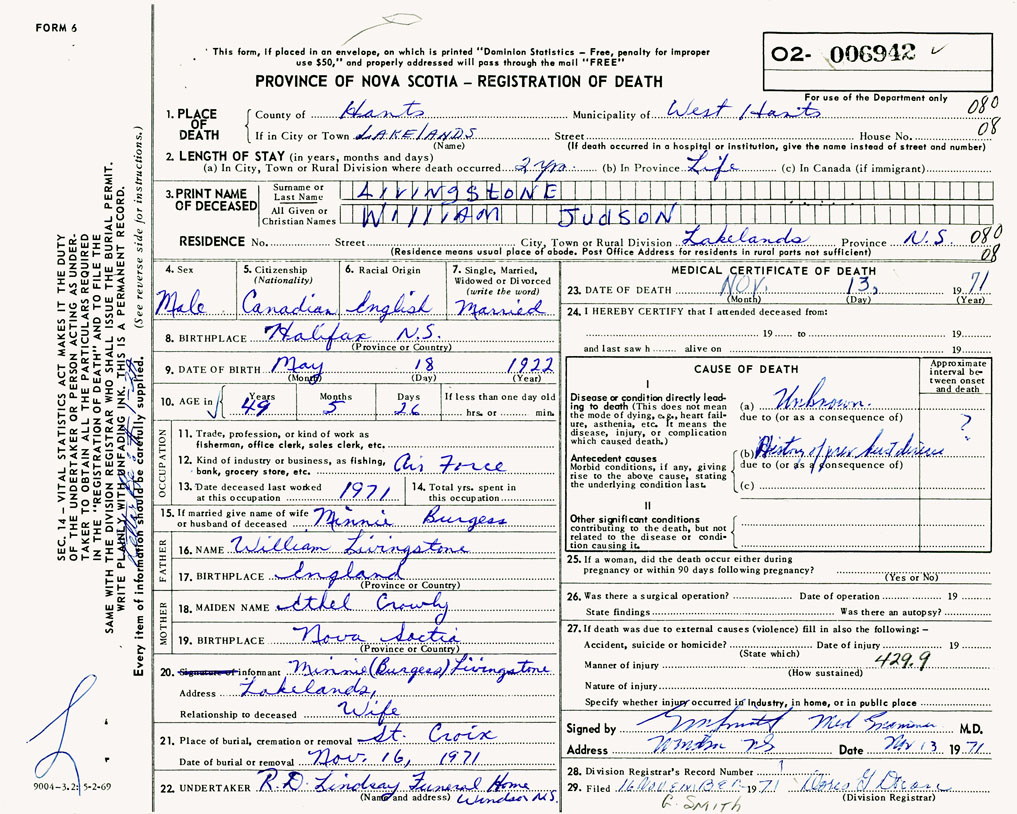 FORM 6
This form, if placed in an envelope, on which is printed "Dominion Statistics — Free, penalty for improper
use $50," and properly addressed will pass through the mail "FREE"
PROVINCE OF NOVA SCOTIA — REGISTRATION OF DEATH
02- 006942 ✓
For use of the Department only
080
08
1. PLACE OF DEATH County of Hants Municipality of West Hants
If in City or Town LAKELANDS Street House No.
(Name) (If death occurred in a hospital or institution, give the name instead of street and number)
2. LENGTH OF STAY (in years, months and days)
(a) In City, Town or Rural Division where death occurred 2 yrs. (b) In Province Life (c) In Canada (if immigrant)
3. PRINT NAME OF DECEASED Surname or Last Name LIVINGSTONE
All Given or Christian Names WILLIAM JUDSON
RESIDENCE No. Street City, Town or Rural Division Lakelands Province N.S 080
(Residence means usual place of abode. Post Office Address for residents in rural parts not sufficient) 08
4. Sex Male
5. Citizenship (Nationality) Canadian
6. Racial Origin English
7. Single, Married, Widowed or Divorced (write the word) Married
8. BIRTHPLACE Halifax N.S.
(Province or Country)
9. DATE OF BIRTH May 18 1922
(Month) (Day) (Year)
10. AGE in Years Months Days If less than one day old
49 5 26 hrs. or min.
OCCUPATION
11. Trade, profession, or kind of work as
fisherman, office clerk, sales clerk, etc.
12. Kind of industry or business, as fishing,
bank, grocery store, etc. Air Force
13. Date deceased last worked
at this occupation 1971
14. Total yrs. spent in
this occupation
15. If married give name of wife
or husband of deceased Minnie Burgess
FATHER
16. NAME William Livingstone
17. BIRTHPLACE England
(Province or Country)
MOTHER
18. MAIDEN NAME Ethel Crowly
19. BIRTHPLACE Nova Soctia
(Province or Country)
20. Signature of informant Minnie (Burgess) Livingstone
Address Lakelands,
Relationship to deceased Wife
21. Place of burial, cremation or removal St. Croix
Date of burial or removal Nov. 16, 1971
22. UNDERTAKER R.D. Lindsay Funeral Home
(Name and address) Windsor N.S.
MEDICAL CERTIFICATE OF DEATH
23. DATE OF DEATH NOV. 13, 1971
(Month) (Day) (Year)
24. I HEREBY CERTIFY that I attended deceased from:
19 to 19
and last saw h alive on 19
CAUSE OF DEATH
Approximate interval between onset and death
I
Disease or condition directly leading to death (This does not mean the mode of dying, e.g., heart failure, asthenia, etc. It means the disease, injury, or complication which caused death.)
(a) Unknown.
due to (or as a consequence of)
?
Antecedent causes
Morbid conditions, if any, giving rise to the above cause, stating the underlying condition last.
(b) History of prev. heart disease
due to (or as a consequence of)
(c)
II
Other significant conditions
contributing to the death, but not related to the disease or condition causing it.
25. If a woman, did the death occur either during
pregnancy or within 90 days following pregnancy?
(Yes or No)
26. Was there a surgical operation? Date of operation 19
State findings Was there an autopsy?
27. If death was due to external causes (violence) fill in also the following:—
Accident, suicide or homicide? Date of injury 19
(State which) 429.9
Manner of injury
(How sustained)
Nature of injury
Specify whether injury occurred in industry, in home, or in public place
Signed by Med Examiner M.D.
Address NS Date Nov 13 1971
28. Division Registrar's Record Number 1
29. Filed 16 NOVEMBER 1971
(Division Registrar)
G. SMITH
SEC. 14 — VITAL STATISTICS ACT MAKES IT THE DUTY
OF THE UNDERTAKER OR PERSON ACTING AS UNDERTAKER TO OBTAIN ALL THE PARTICULARS REQUIRED
IN THE "REGISTRATION OF DEATH" AND TO FILE THE
SAME WITH THE DIVISION REGISTRAR WHO SHALL ISSUE THE BURIAL PERMIT.
WRITE PLAINLY WITH UNFADING INK. THIS IS A PERMANENT RECORD.
Every item of information should be carefully supplied. (See reverse side for instructions.)
9004-3.2: 5-2-69